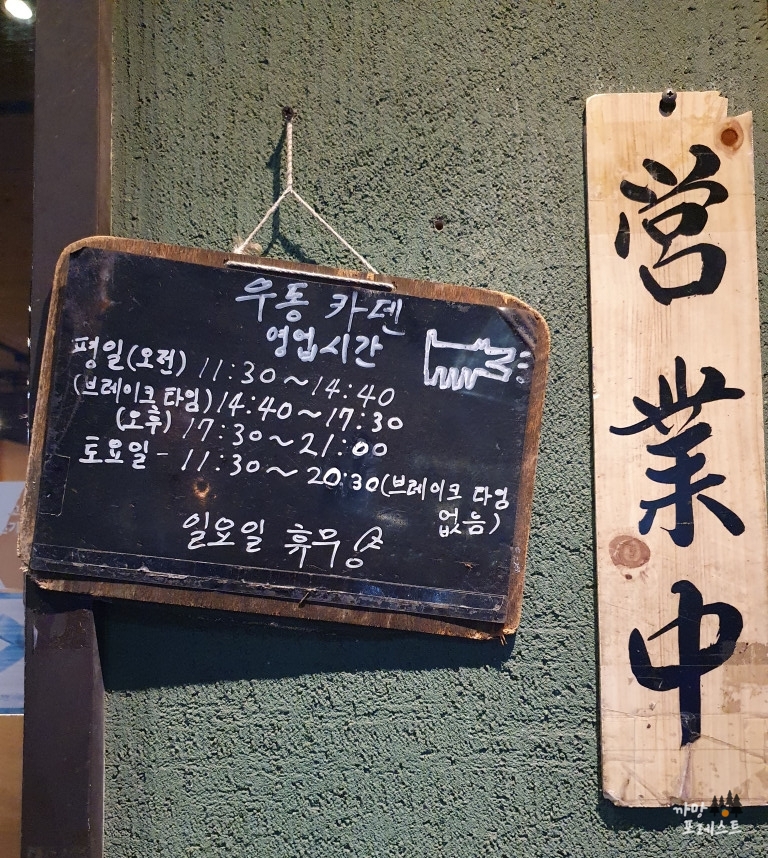 우동 카덴
영업시간
평일(오전) 11:30~14:40
(브레이크 타임) 14:40~17:30
(오후) 17:30~21:00
토요일 - 11:30~20:30(브레이크 타임
없음)
일요일 휴무
営業中
까망
포레스트